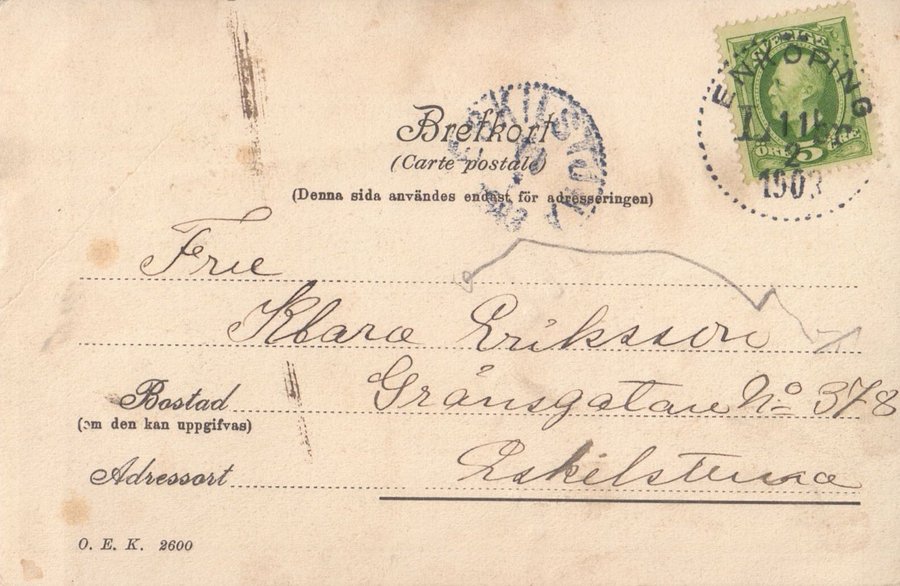 SVERIGE
ENKÖPING
L
11
2
1903
ÖRE 5 ÖRE
Brefkort
ESKILSTUNA
(Carte postale)
(Denna sida användes endast för adresseringen)
Fru
Klara Eriksson
Bostad Gränsgatan No 378
(om den kan uppgifvas)
Adressort Eskilstuna
O. E. K. 2600